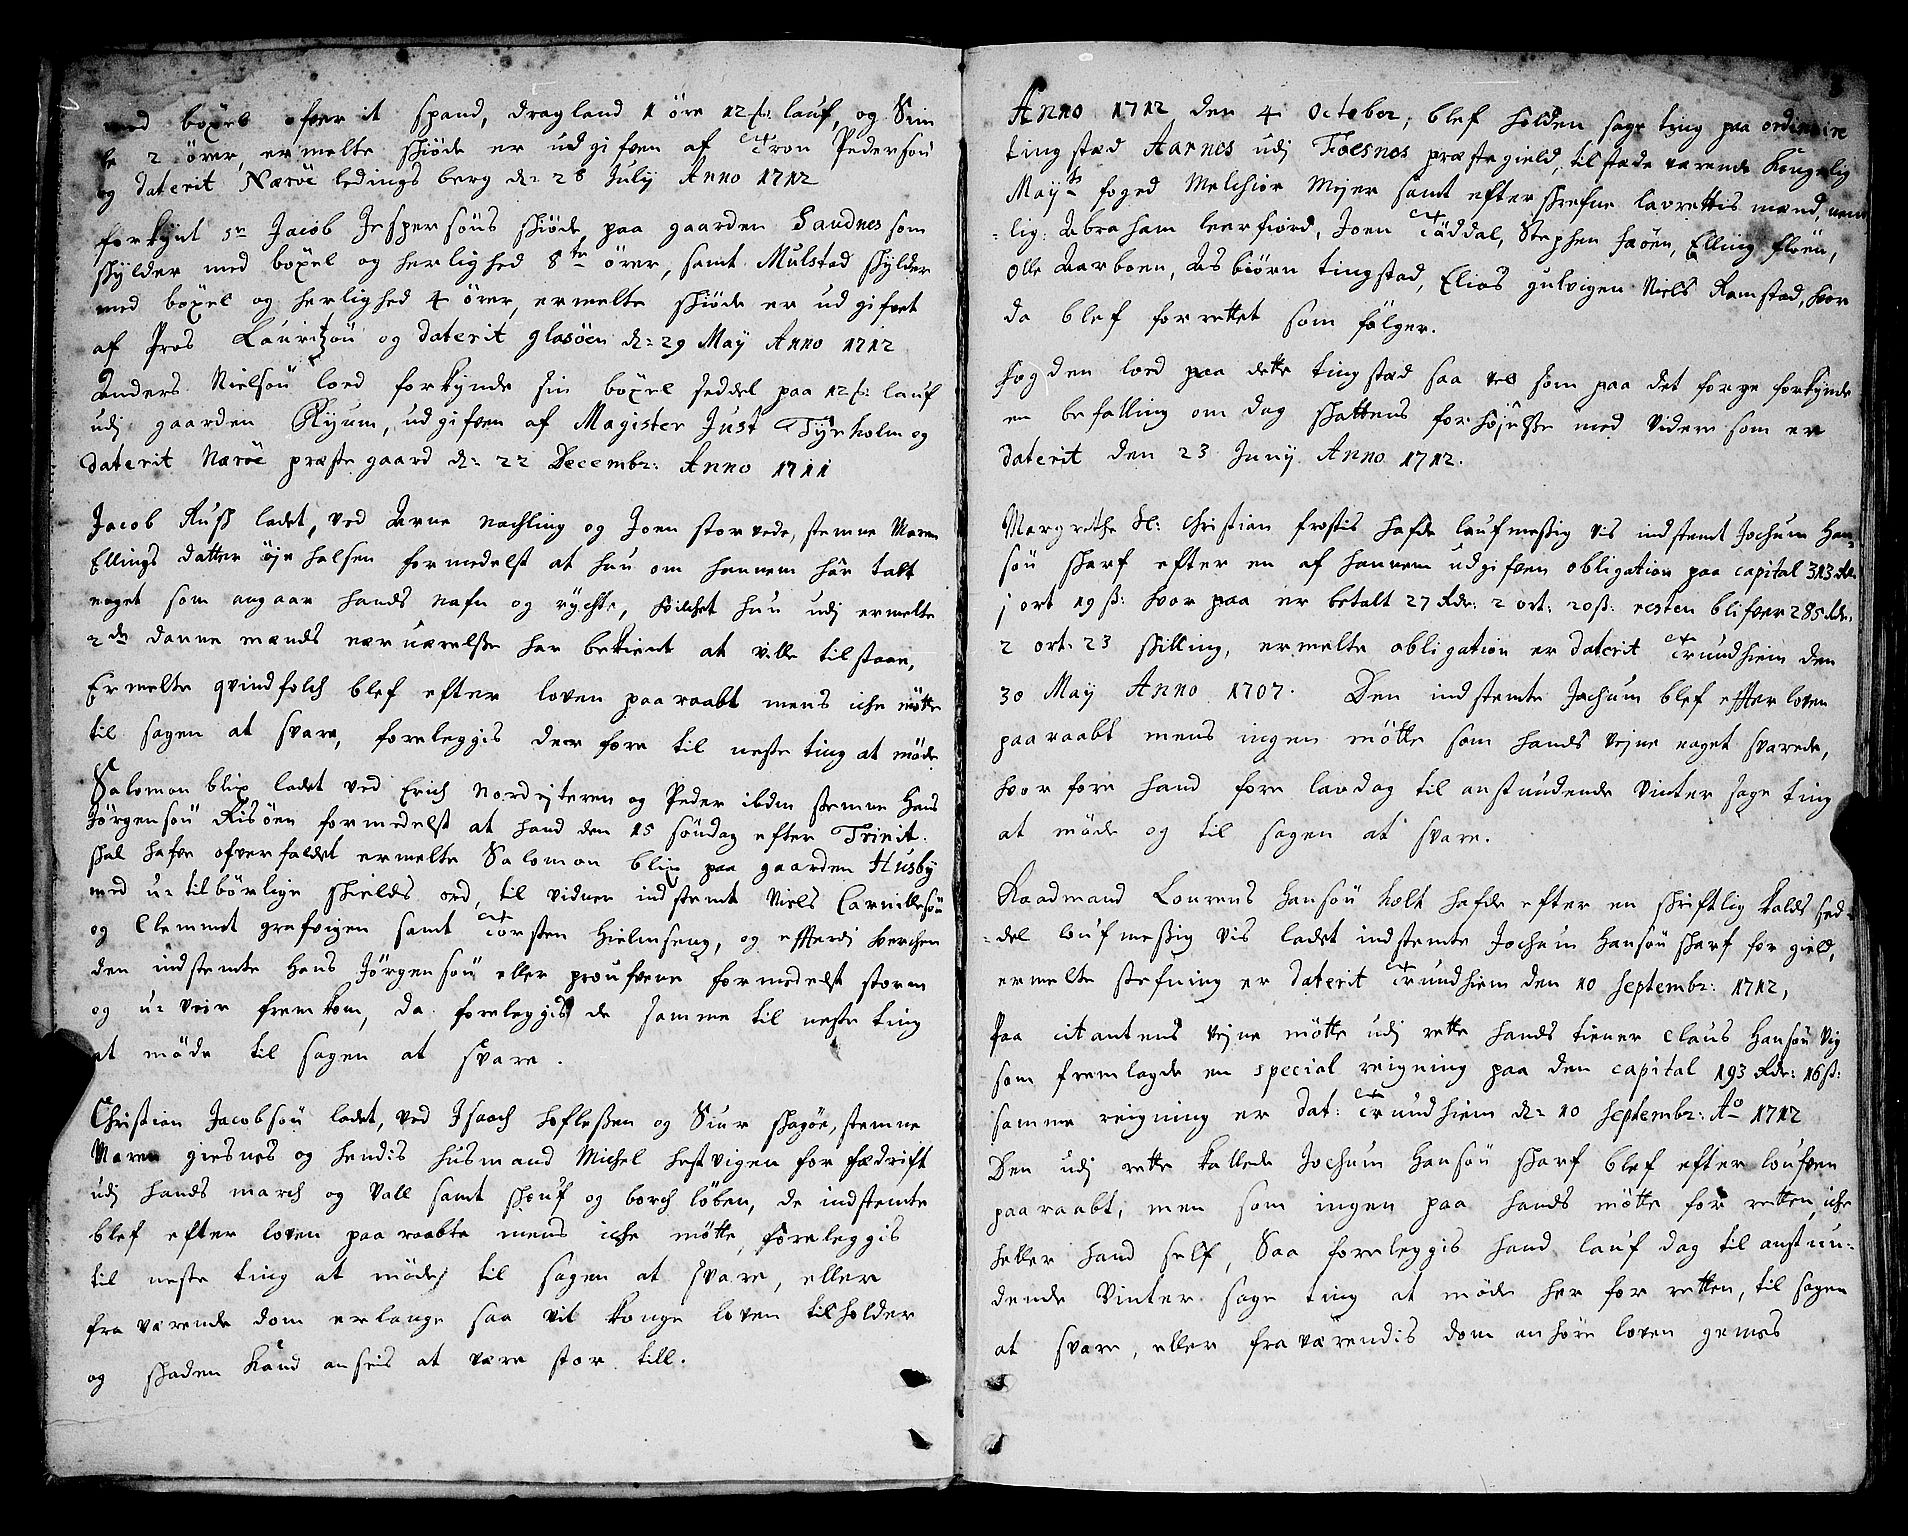 med böxel ofver it spand, dragland 1 öre 12 ſ: lauf, og Sem
te 2 örer, ermelte skiöde er udgifven af Tron Pedersøn
og daterit Næröe ledings berg d: 28 July Anno 1712
forkynt sr Jacob Jespersöns skiöde paa gaarden Sandnes som
skylder med böxel og herlighed 8te örer, samt Mulstad skylder
med böxel og herlighed 4 örer, ermelte skiöde er udgifvet
af Pros Lauritzøn og daterit glosöen d: 29 May Anno 1712
Anders Nielsøn loed forkynde sin böxel seddel paa 12 ſ: lauf
udj gaarden Ryum, udgifven af Magister Just Tyrholm og
daterit Næröe præste gaard d: 22 Decembr: Anno 1711
Jacob Russ ladet, ved Arne nachling og Joen storvede, stemne Maren
Ellings datter öye halsen formedelst at hun om hannem har talt
noget som angaar hands nafn og rychte, hvilchet hun udj ermelte
2de danne mænds nærværelsse har bekient at ville tilstaae,
Ermelte qvindfolch blef efter loven paaraabt mens iche mötte
til sagen at svare, foreleggis derfore til neste ting at möde
Salomon blix ladet ved Erich Nordgteren og Peder ibdm stemne Hans
Jörgensøn Risöen formedelst at hand den 15 söndag efter Trinit.
skal hafve ofverfaldet ermelte Salomon blix paa gaarden Husby
med u-tilbörlige skields ord, til vidner indstemt Niels Carnillesøn
og Clemmet grafvigen samt Torsten Hielmseng, og effterdj hverchen
den indstemte Hans Jörgensøn eller proufvene formedelst storm
og u-veir fremkom, da foreleggis de samme til neste ting
at möde til sagen at svare.
Christian Jacobsøn ladet, ved Isaach hoflessen og Siur skagöe, stemne
Maren giesnes og hendis husmand Michel hestvigen for fædrift
udj hands march og vall samt skouf og borch löben, de indstemte
blef efter loven paaraabte mens iche mötte, foreleggis
til neste ting at möde til sagen at svare, eller
fraværende dom erlange saa vit konge loven tilholder
og skaden kand ansees at være stor till.
Anno 1712 den 4 October, blef holden sage ting paa ordinaire
tingsted Aarnes udj Foesnes præstegield, tilstede værende Kongelig
Mayts foged Melchior Mejer samt efterskrefne lavrettis mænd, nem-
lig: Abraham leerfiord, Joen Töddal, Stephen haöen, Elling floen,
Olle Aarboen, Asbiörn tingstad, Elias gulvigen Niels Ramstad, hvor
da blef forrettet som fölger.
Fogden loed paa dette tingsted saa vel som paa det forge forkynde
en befalling om dag skattens forhöjelsse med videre som er
daterit den 23 Juny Anno 1712.
Margrethe Sl: Christian frostis hafde laufmessig vis indstemt Jochum Han-
søn skarf efter en af hannem udgifven obligation paa capital 313 Rdr.
1 ort 19 ß: hvor paa er betalt 27 Rdr: 2 ort: 20 ß: resten blifver 285 Rdr:
2 ort: 23 skilling, ermelte obligation er daterit Trundhiem den
30 May Anno 1707. Den indstemte Jochum blef effter loven
paaraabt mens ingen mötte som hands vejne noget svarede,
hvor fore hand fore lavdag til anstundende vinter sage ting
at möde og til sagen at svare.
Raadmand Lourens Hansøn holt hafde efter en skriftlig kalds sed-
del loufmessig vis ladet indstemte Jochum Hansøn skarf for gield,
ermelte stefning er daterit Trundhiem den 10 Septembr: 1712,
Paa citantens vejne mötte udj rette hands tiener Claus Hansøn Vig
som fremlagde en special reigning paa den capital 193 Rdr: 16 ß:
samme reigning er dat: Trundhiem d: 10 Septembr: Ao 1712
Den udj rette kallede Jochum Hansøn skarf blef efter loufven
paaraabt, men som ingen paa hands mötte for retten, iche
heller hand self, Saa foreleggis hand lauf dag til anstun-
dende vinter sage ting at möde her for retten, til sagen
at svare, eller fraværendis dom anhöre loven gemes